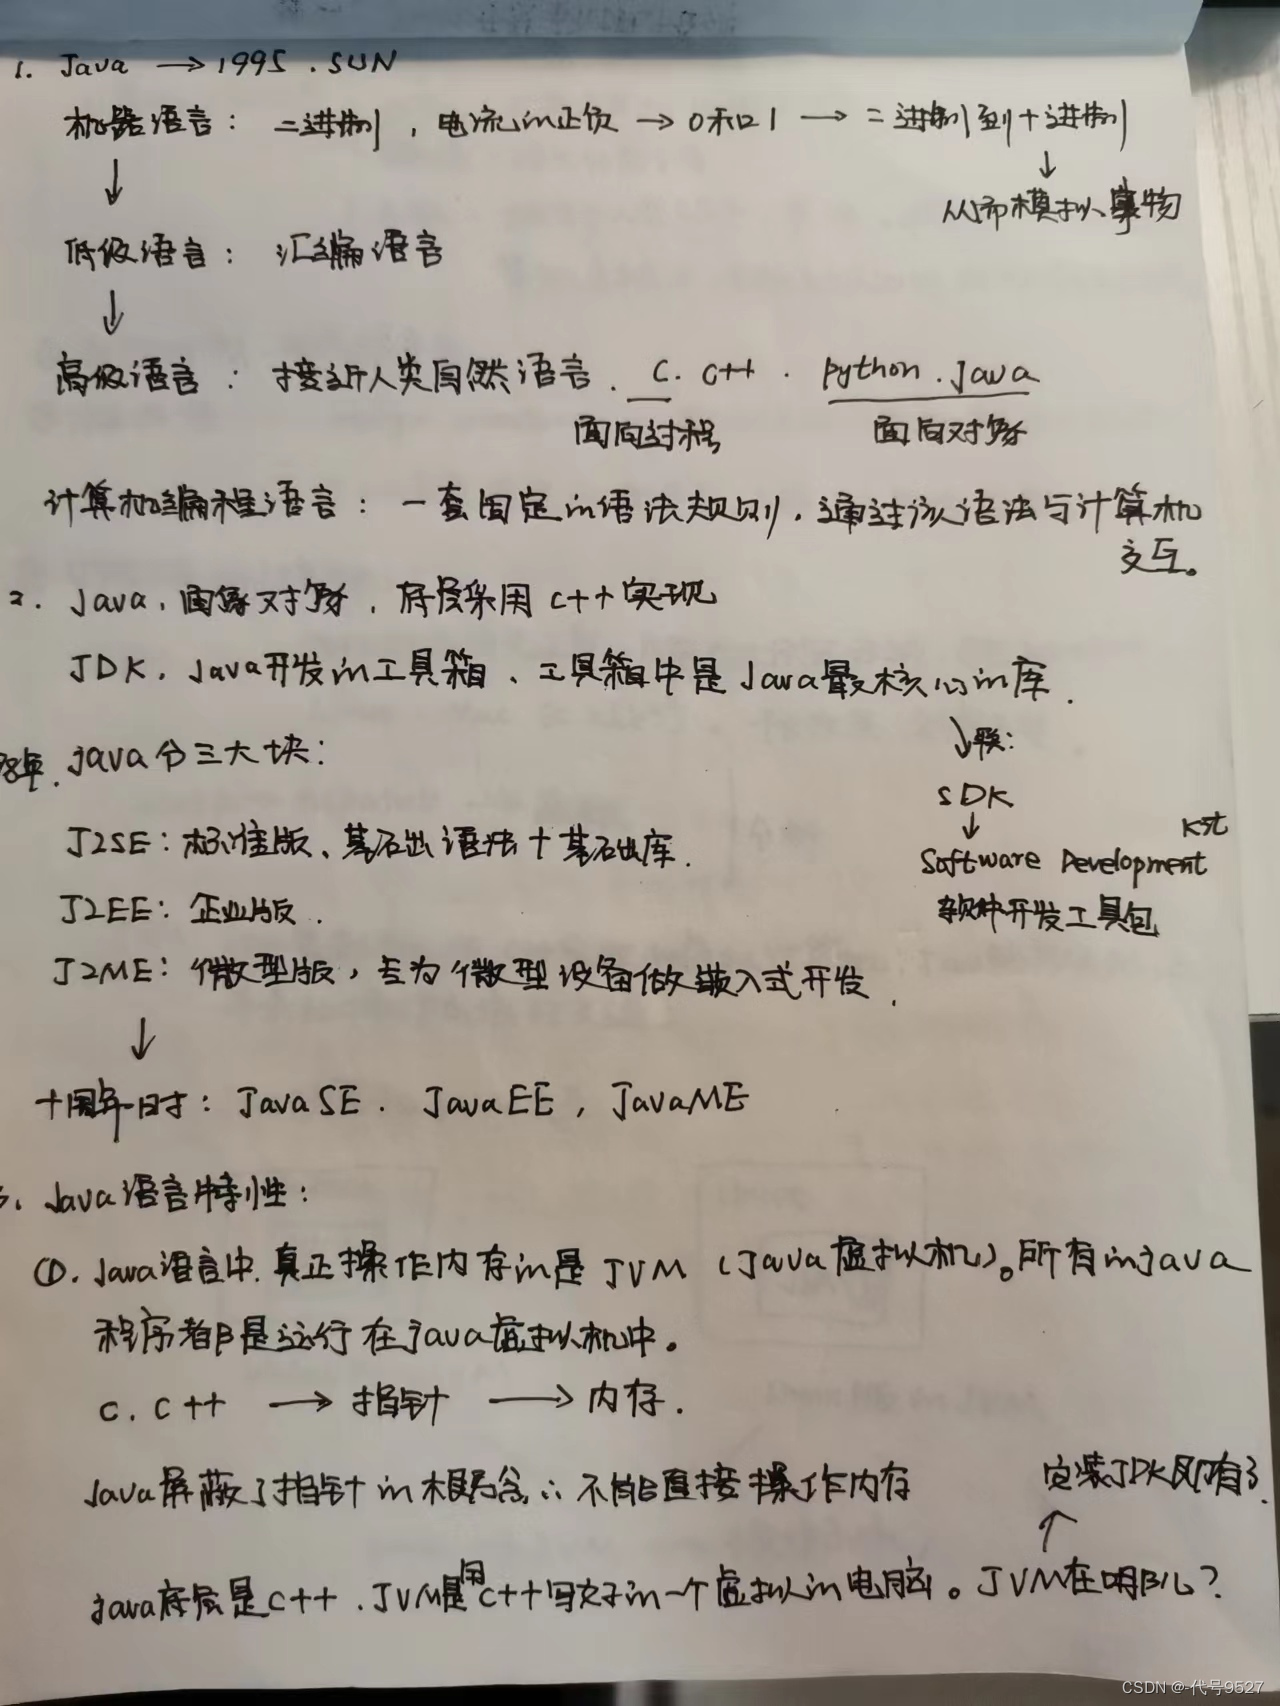 1. Java → 1995 . SUN
机器语言: 二进制, 电流的正负 → 0和1 → 二进制到十进制
↓
从而模拟事物
↓
低级语言: 汇编语言
↓
高级语言: 接近人类自然语言. C. C++. python. Java
面向过程 面向对象
计算机编程语言: 一套固定的语法规则, 通过该语法与计算机
交互。
2. Java, 面象对象, 底层采用 C++ 实现
JDK, Java开发的工具箱、工具箱中是Java最核心的库.
年. java分三大块:
↓
SDK
↓
Kst
J2SE: 标准版、基础语法+基础库.
Software Development
J2EE: 企业版.
软件开发工具包
J2ME: 微型版, 专为微型设备做嵌入式开发.
↓
十周年时: JavaSE. JavaEE, JavaME
3. Java语言特性:
①. Java语言中, 真正操作内存的是 JVM (Java虚拟机)。所有的java
程序都是运行在java虚拟机中。
c. c++ → 指针 → 内存.
Java屏蔽了指针的概念, ∴不能直接操作内存
安装JDK就有了.
↑
java底层是C++. JVM是用C++写好的一个虚拟的电脑。JVM在哪儿?
CSDN @-代号9527